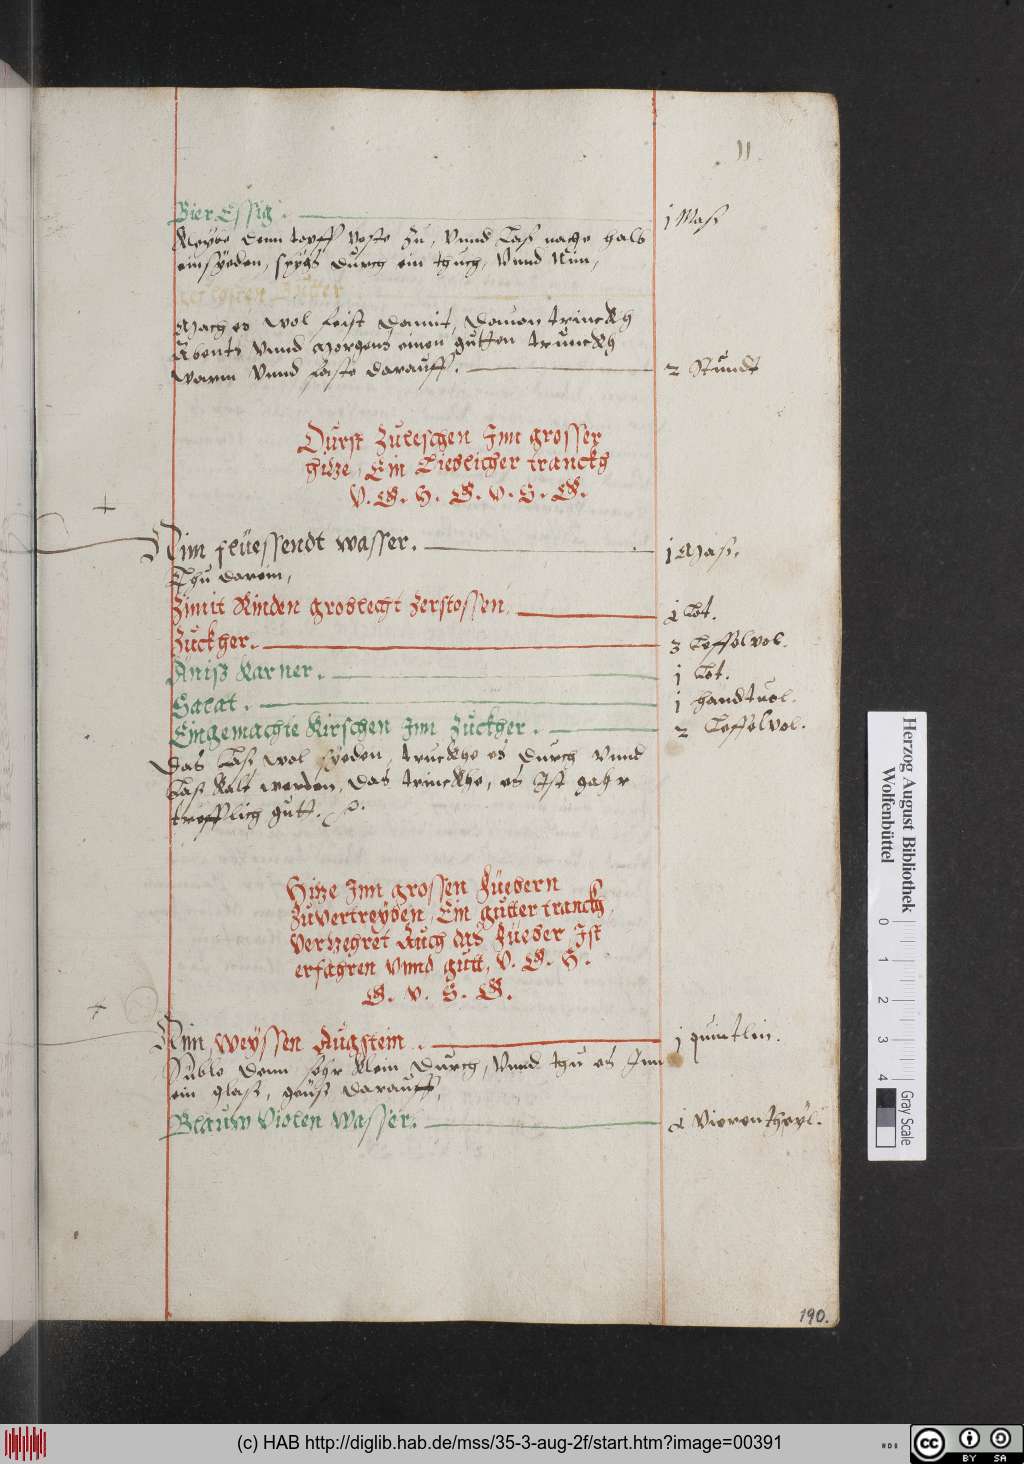 11
Bier Essig. 1 Mass
Kleybe denn topff veste zu, vnnd Lass nache halb
einsyeden, seyhs durch ein thuch, vnnd Nim,
Mach es wol feist damit, dauon trinckh
Abents vnnd Morgens einen gutten trunckh
warm vnnd faste darauff. 2 Stundt
Durst Zuleschen Inn grosser
hitze, Ein Lieblicher tranckh
V. G. H. G. V. S. G.
Nim flüessendt wasser. 1 Mass.
Thu darein,
Zimit Rinden groblecht Zerstossen 1 Lot.
Zuckher. 3 Leffel vol.
Aniss Karner. 1 Lot.
Salat. 1 handtvol.
Eingemachte Kirschen Inn Zuckher. 2 Leffel vol.
Das Lass wol syeden, truckhe es durch vnnd
Lass kalt werden, das trinckhe, es Ist gahr
trefflich gutt.
Hitze Inn grossen Fiebern
Zuvertreyben, Ein gutter tranckh,
Vertzehret Auch das Fieber, Ist
erfahren vnnd gutt, V. G. H.
G. V. S. G.
Nim Weyssen Augstein 1 quintlin.
ein glass, geuss darauff,
Blauw Violen Wasser. 1 Vierentheyl.
190.
Herzog August Bibliothek
Wolfenbüttel
0 1 2 3 4
Gray Scale
(c) HAB http://diglib.hab.de/mss/35-3-aug-2f/start.htm?image=00391
cc BY SA